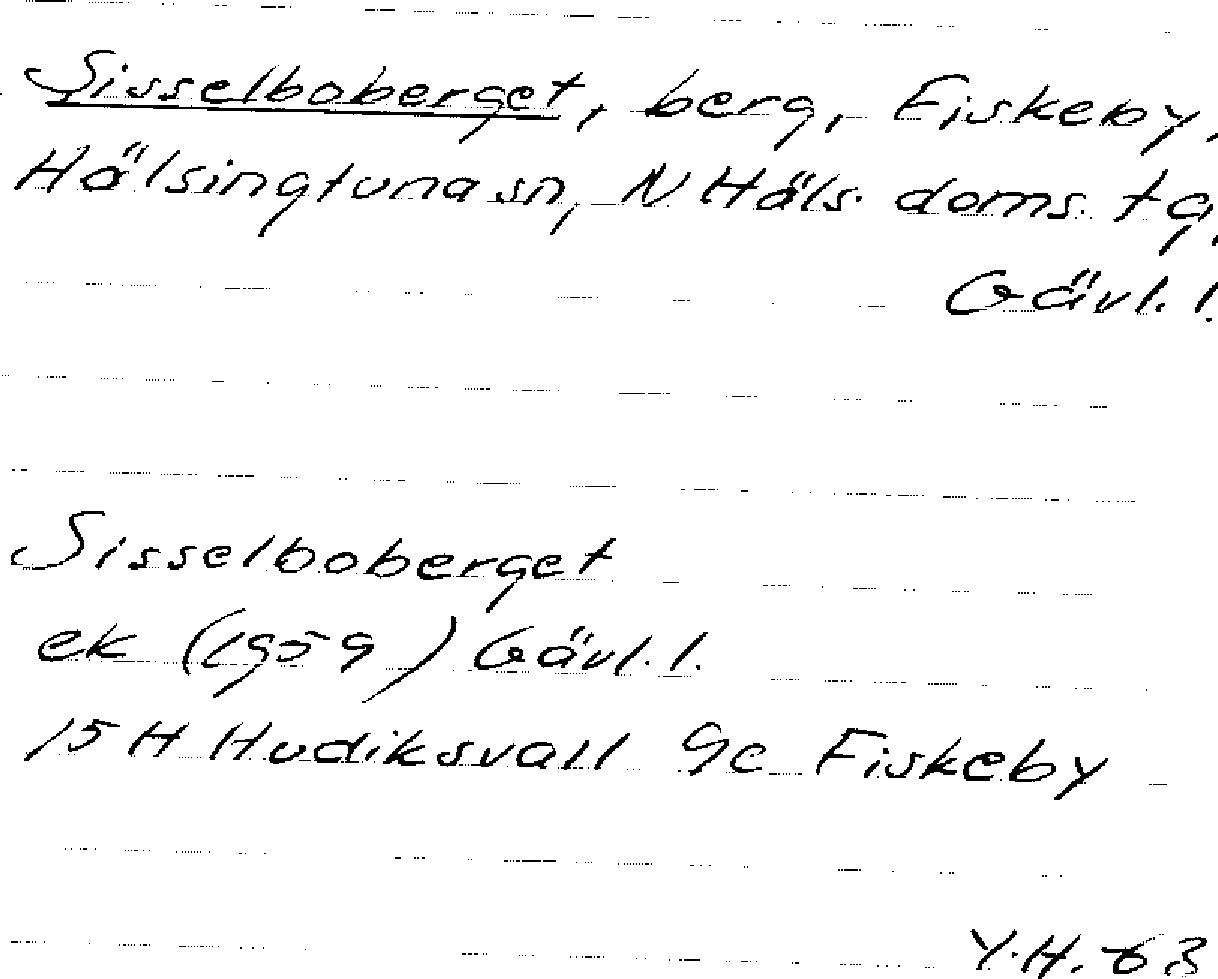 Sisselboberget, berg, Fiskeby,
Hälsingtuna sn, N Häls. doms. tg,
Gävl. l.
Sisselboberget
ek (1959) Gävl. l.
15 H Hudiksvall 9c Fiskeby
Y.H. 63